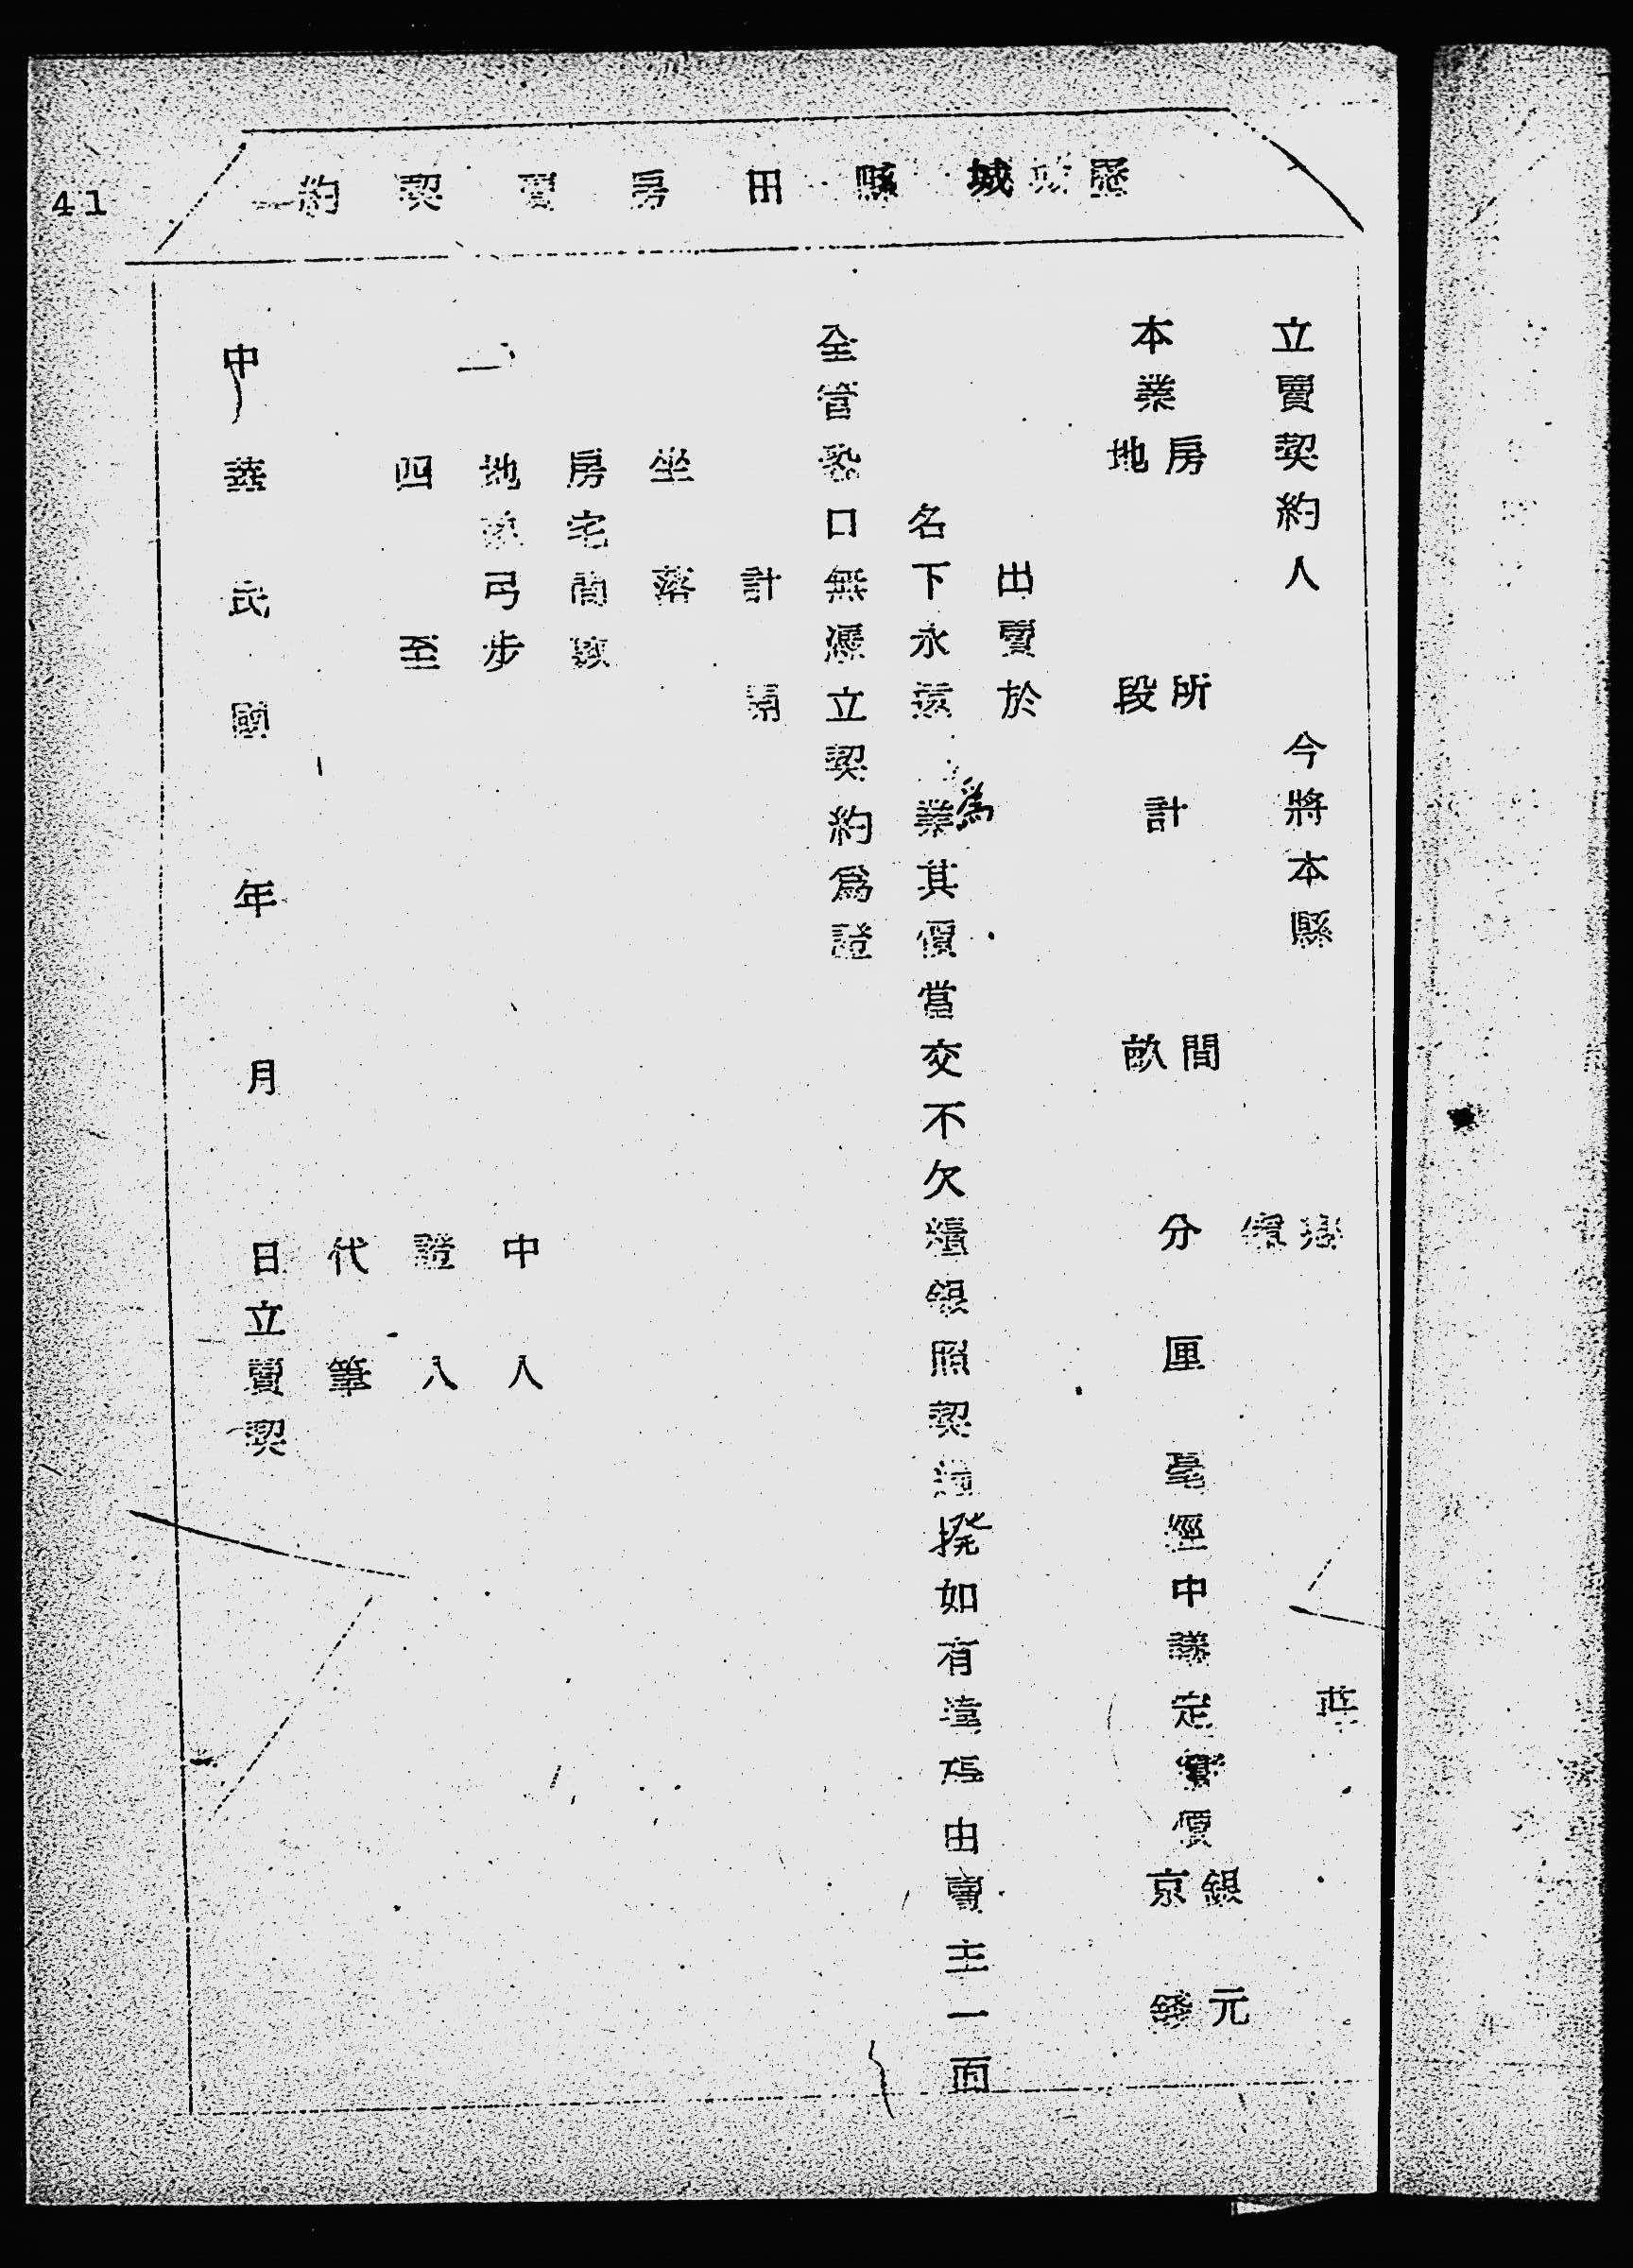 縣城縣田房賣契約
41
立賣契約人 今將本縣 莊
本業房地 所段 計 間畝 分 厘 毫經中議定實價銀京 元錢
出賣於
名下永遠為業其價當交不欠糧銀照契過撥如有違碍由賣主一面
全管恐口無憑立契約爲證
計開
坐落
房宅間數
地 弓步
四至
中人
證人
代筆
中華民國 年 月 日立賣契